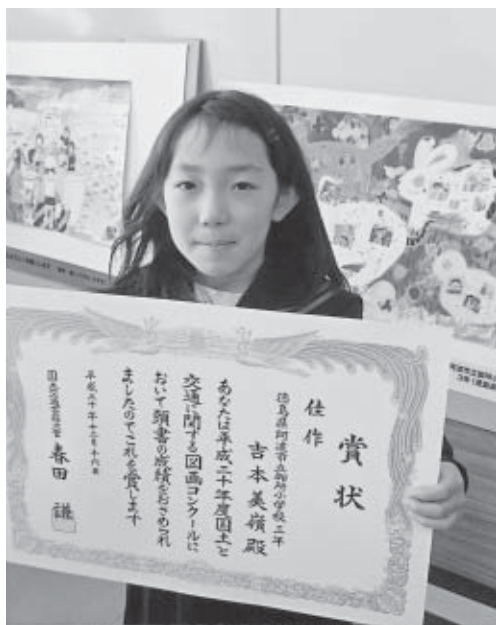 賞状
佳作
徳島県阿波市立 小学校三年
吉本美嶺殿
あなたは平成二十年度国土と
交通に関する図画コンクールに
おいて頭書の成績をおさめられ
ましたのでこれを賞します
平成二十年十二月十六日
国土交通事務次官 春田謙